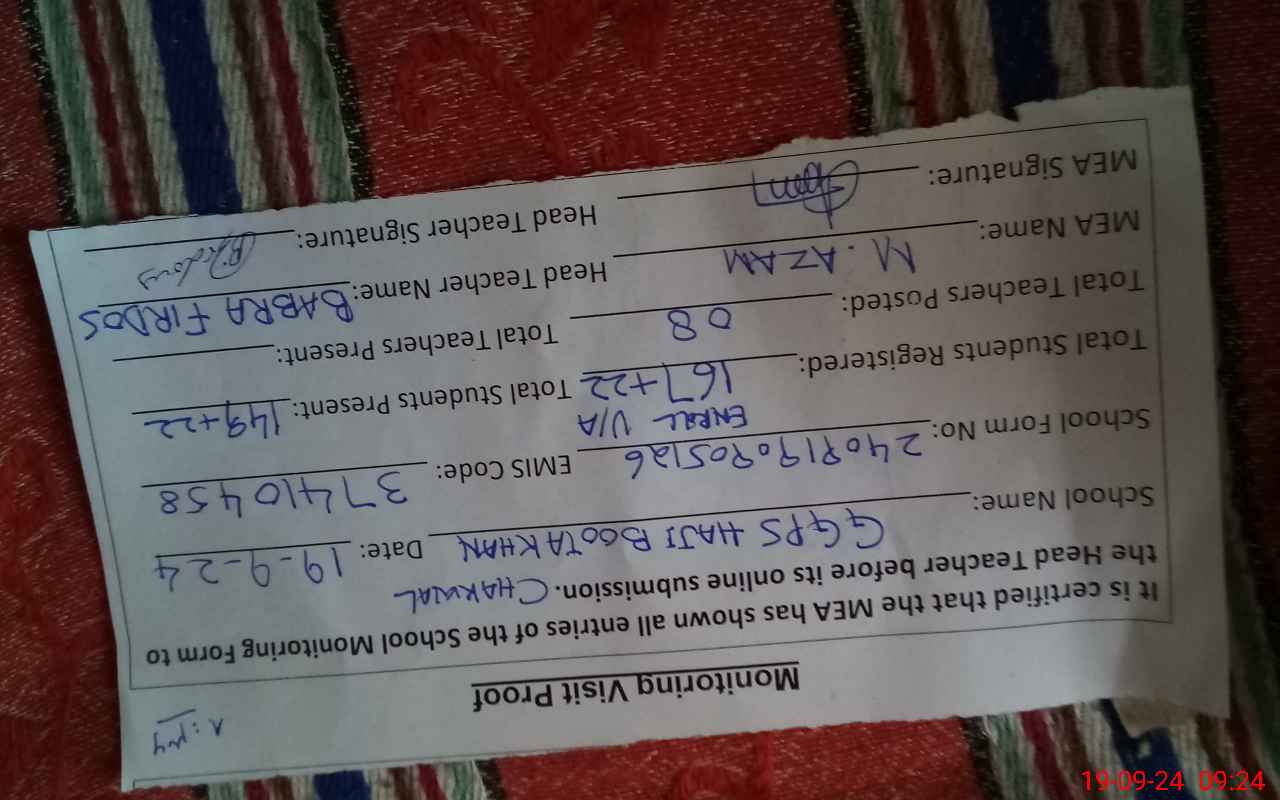 Monitoring Visit Proof
It is certified that the MEA has shown all entries of the School Monitoring Form to
the Head Teacher before its online submission. CHAKWAL
School Name: GGPS HAJI BOOTA KHAN Date: 19-9-24
School Form No: 2409190905126 EMIS Code: 37410458
ENROL U/A
Total Students Registered: 167+22 Total Students Present: 149+22
Total Teachers Posted: 08 Total Teachers Present:
MEA Name: M. AZAM Head Teacher Name: BABRA FIRDOS
MEA Signature: Head Teacher Signature:
19-09-24 09:24